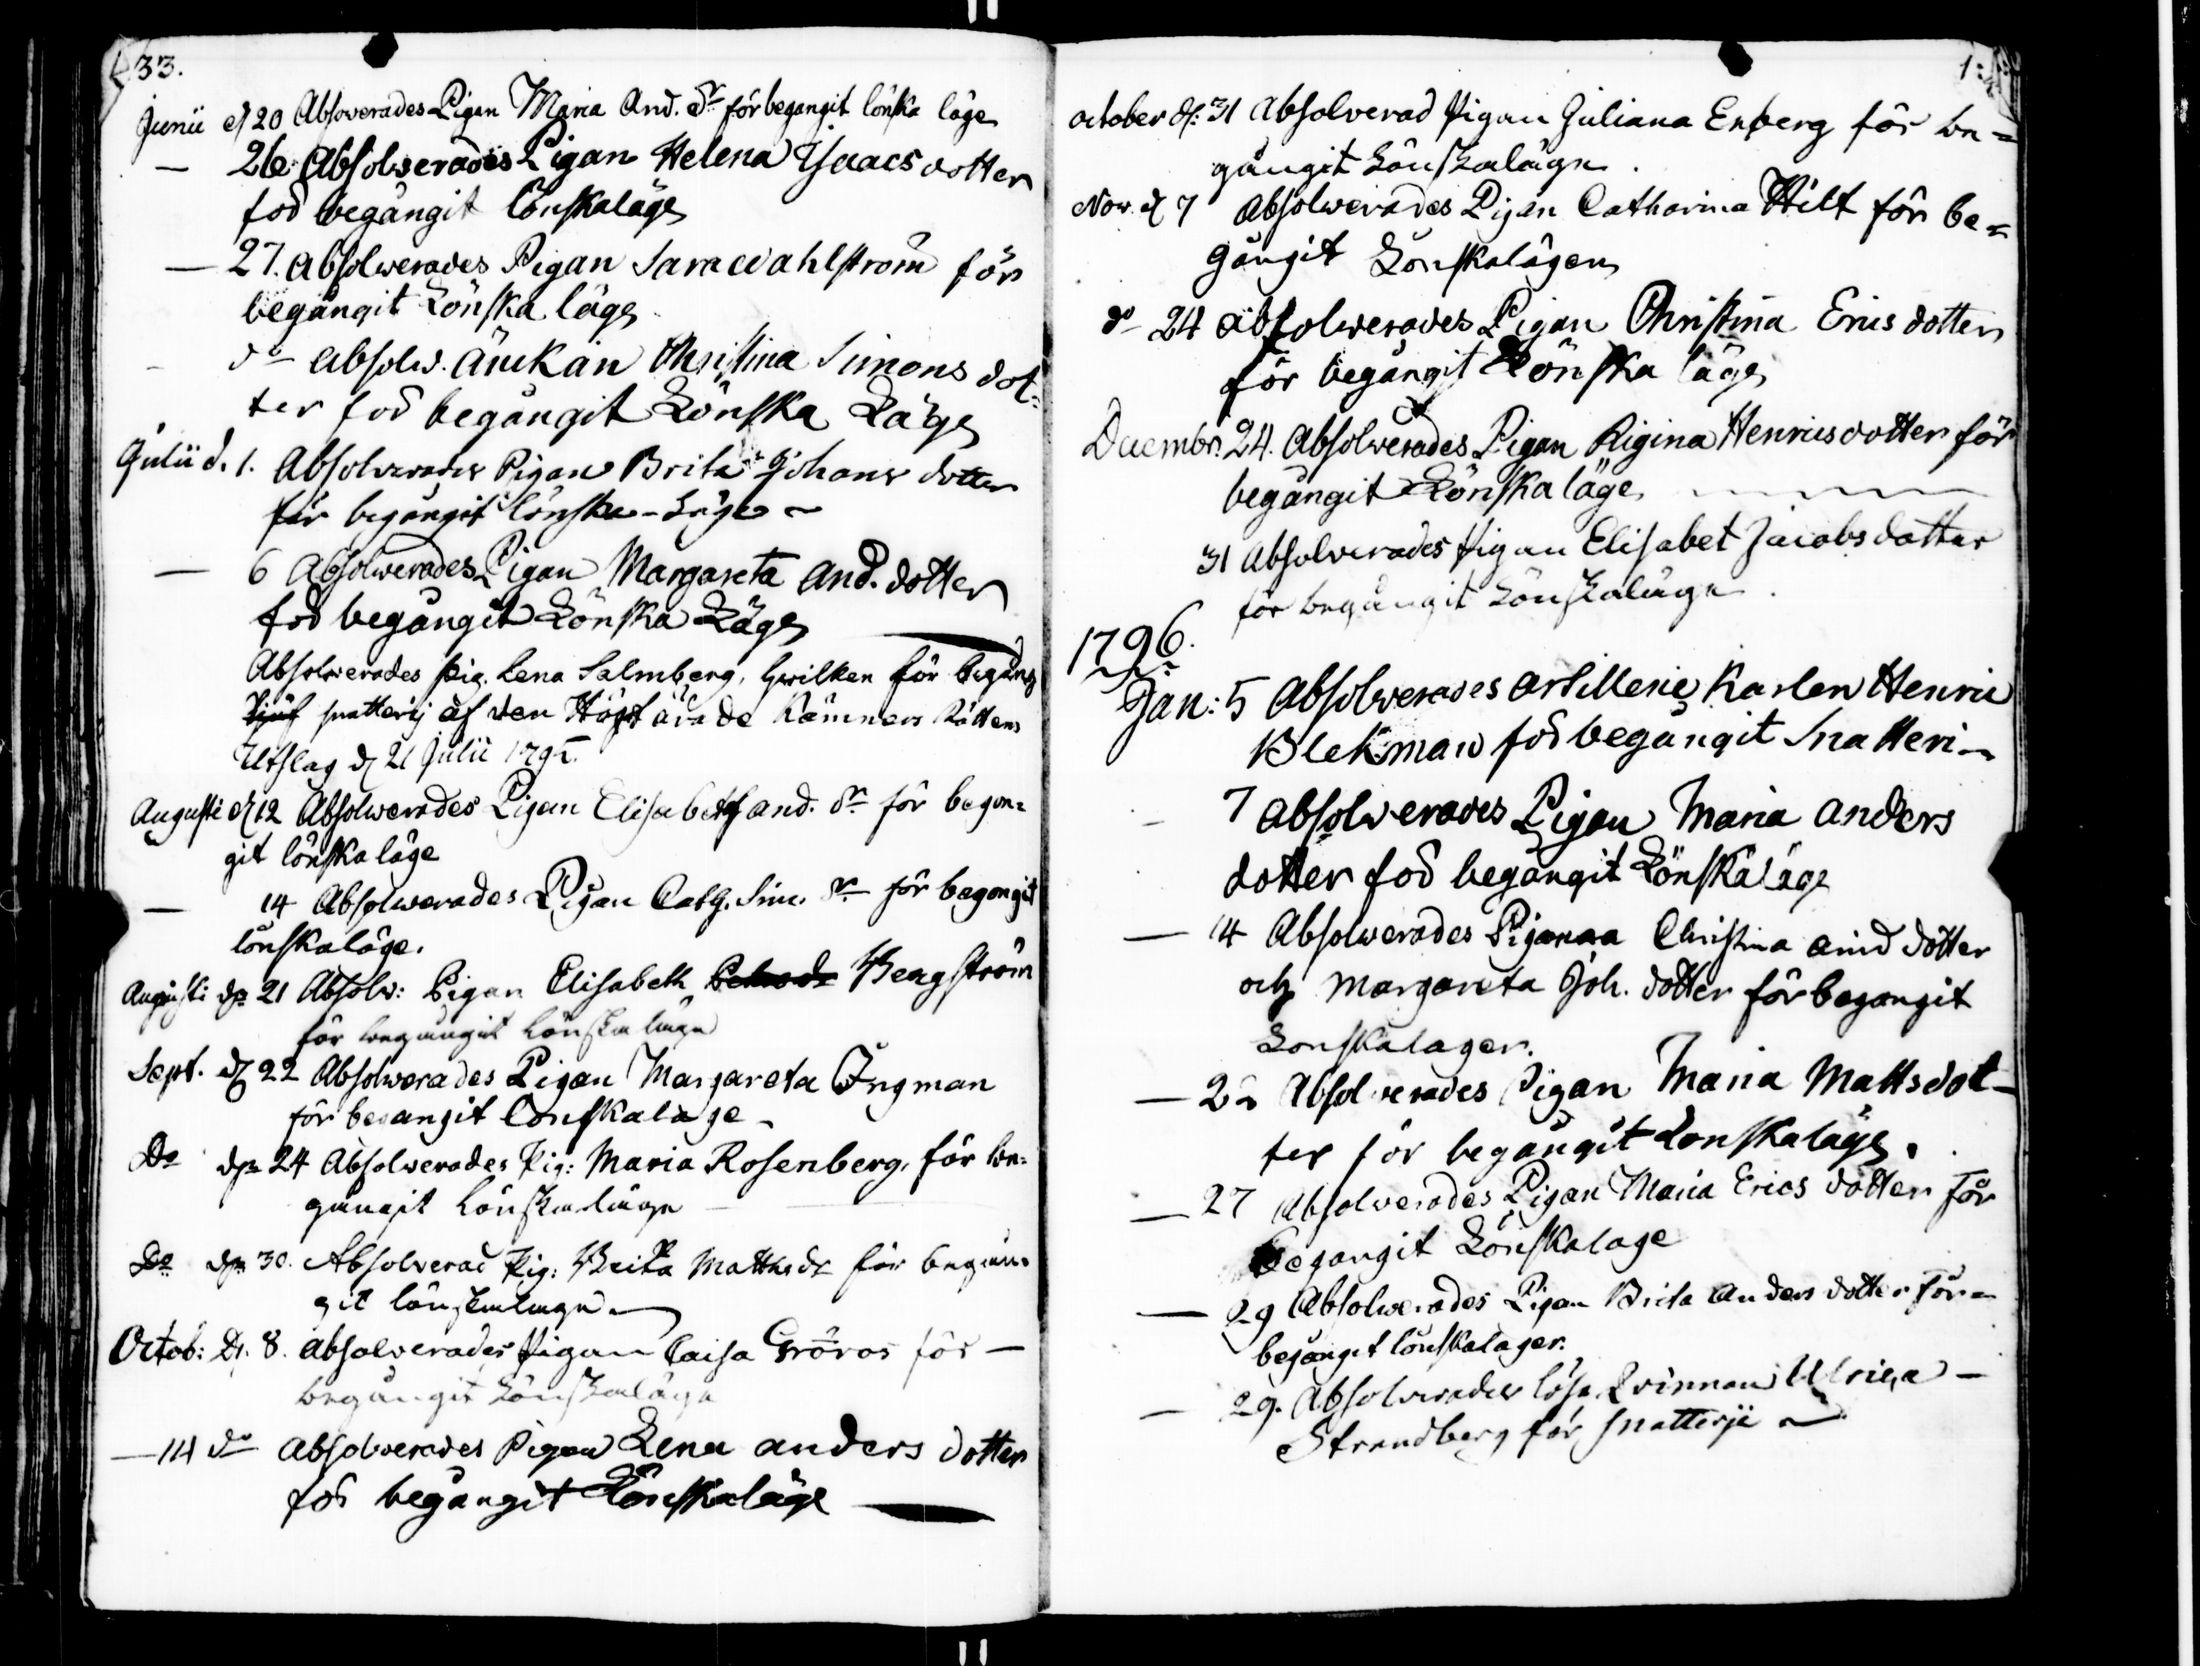 33.
Junii d 20 Absoverades Pigan Maria And. dr för begangit lönska läge
— 26 Absolverades Pigan Helena Isaacs dotter
för begångit lönskaläge
— 27. absolwerades Pigan Sara Wahlström för
begångit Lönska läge
do absolw. änckan Christina Simons dot=
ter för begångit Lönska Läge
Julii d. 1. Absolverades Pigan Brita Johans dotter
för begångit lönska-Läge ~
— 6 Absolwerades Pigan Margareta And. dotter
för begångit Lönska Läge
Absolwerades pig. Lena Salmberg, hwilken för begång
snatterij af den Högt ärade Kämners Rättens
Utslag d 21 Julii 1795.
Augusti d 12 Absolwerades Pigan Elisabeth and. dr för began=
git lönska läge
— 14 Absolwerades Pigan Cath. Sim. dr för begangit
lönskaläge.
Augusti dn 21 Absolw: Pigan Elisabeth Bergström
för begångit Lönska läge
Sept. d 22 Absolwerades Pigan Margareta Ingman
för begangit Lonskaläge
Do dn 24 Absolwerades Pig: Maria Rosenberg, för be=
gångit Lönska läge
Do dn 30. Absolverad Pig: Brita Mattsdr för begån=
git lönskaläge
Octob: D. 8. absolverades Pigan Caisa Gröros för —
begångit Lönskaläge
— 14 do absolverades Pigan Lena anders dotter
för begångit Lönskaläge
october d: 31 Absolverad Pigan Juliana Enberg för be=
gångit Lönskaläge.
Nov d 7 Absolwerades Pigan Catharina Hilt för be=
gångit Lönskalägen
do 24 absolwerades Pigan Christina Erics dotter
för begångit Lönska läge
Decembr. 24. Absolwerades Pigan Rigina Henricsdotter för
begångit Lönska läge
31 Absolverades Pigan Elisabet Jacobs dotter
för begångit Lönskaläge.
1796.
Jan: 5 Absolverades Artillerie Karlen Henric
Blekman för begångit Snatteri
7 absolwerades Pigan Maria anders
dotter för begångit Lönskäläge
— 14 Absolwerades Piganaa Christina and dotter
och Margareta Joh. dotter för begangit
Lonskalager.
— 22 Absolverades Pigan Maria Mattsdot-
ter för begångit Lonskaläge.
— 27 Absolwerades Pigan Maria Erics dotter för
begangit Lönskalage
— 29 Absolwerades Pigan Brita Anders dotter för
begånget lönskalager.
— 29. Absolverades lösa Qvinnan Ulrica —
Strandberg för snatterje